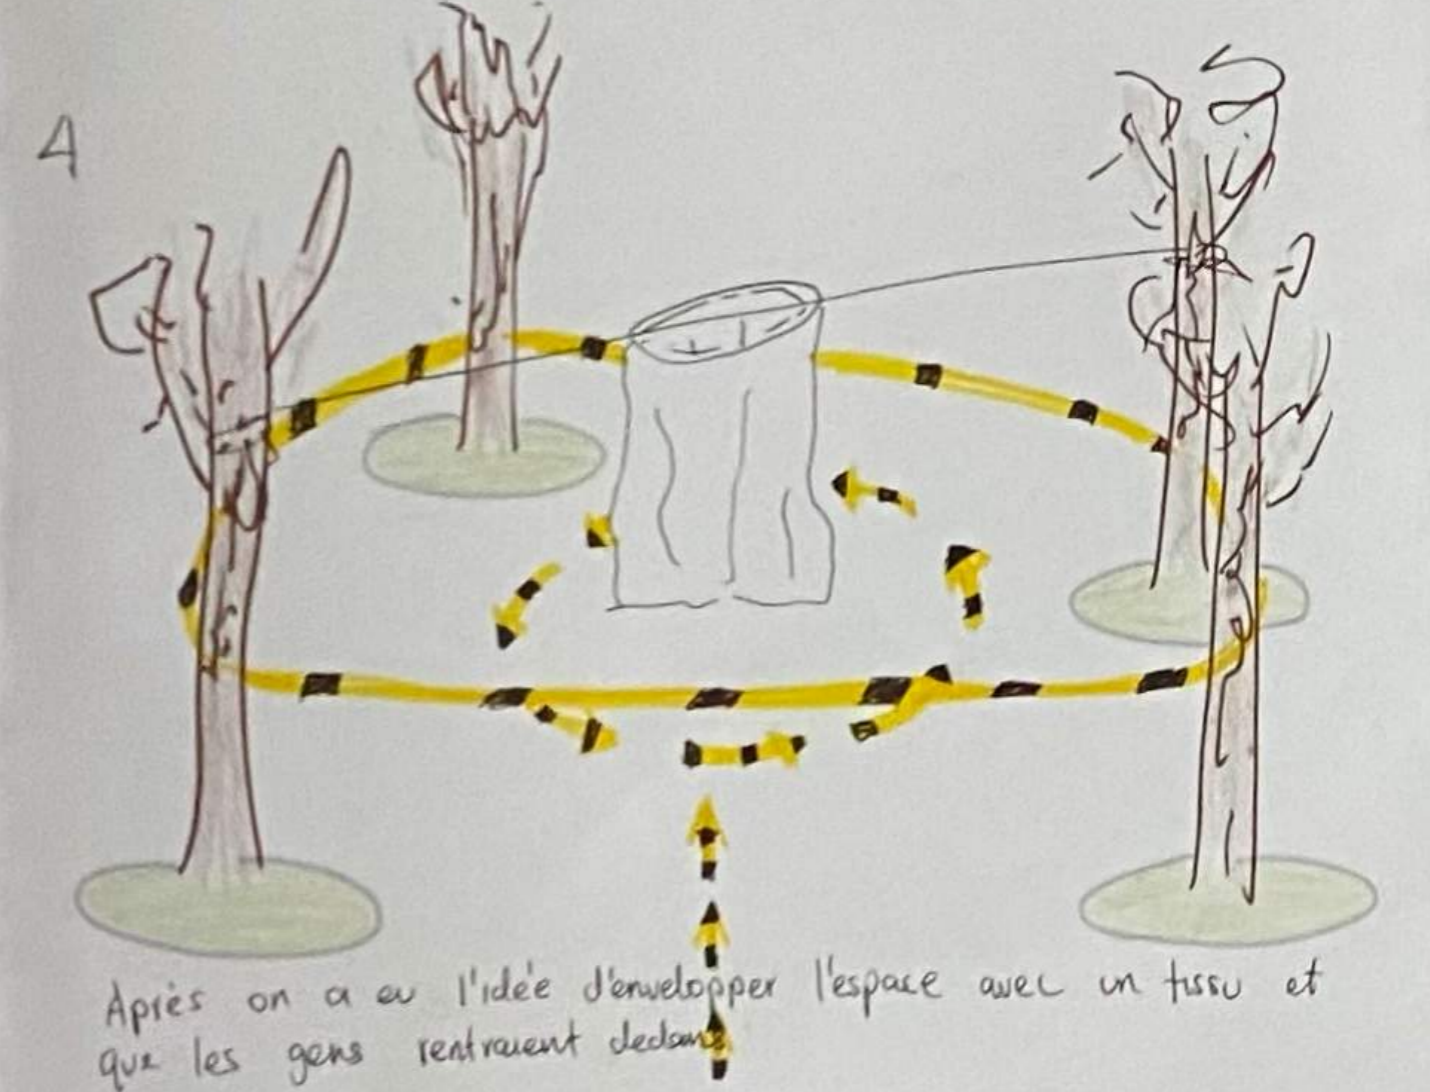 4
Après on a eu l'idée d'envelopper l'espace avec un tissu et
que les gens rentraient dedans